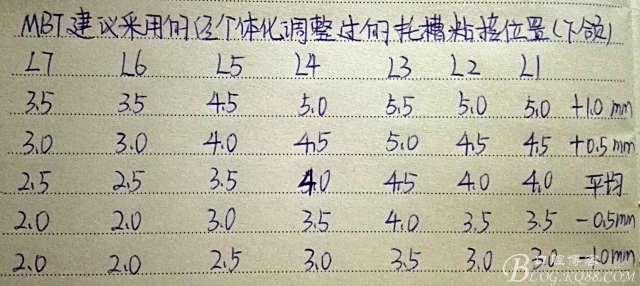 MBT建议采用的经个体化调整过的托槽粘接位置(下颌)
L7 L6 L5 L4 L3 L2 L1
3.5 3.5 4.5 5.0 5.5 5.0 5.0 +1.0mm
3.0 3.0 4.0 4.5 5.0 4.5 4.5 +0.5mm
2.5 2.5 3.5 4.0 4.5 4.0 4.0 平均
2.0 2.0 3.0 3.5 4.0 3.5 3.5 -0.5mm
2.0 2.0 2.5 3.0 3.5 3.0 3.0 -1.0mm
BLOG.KQ88.COM